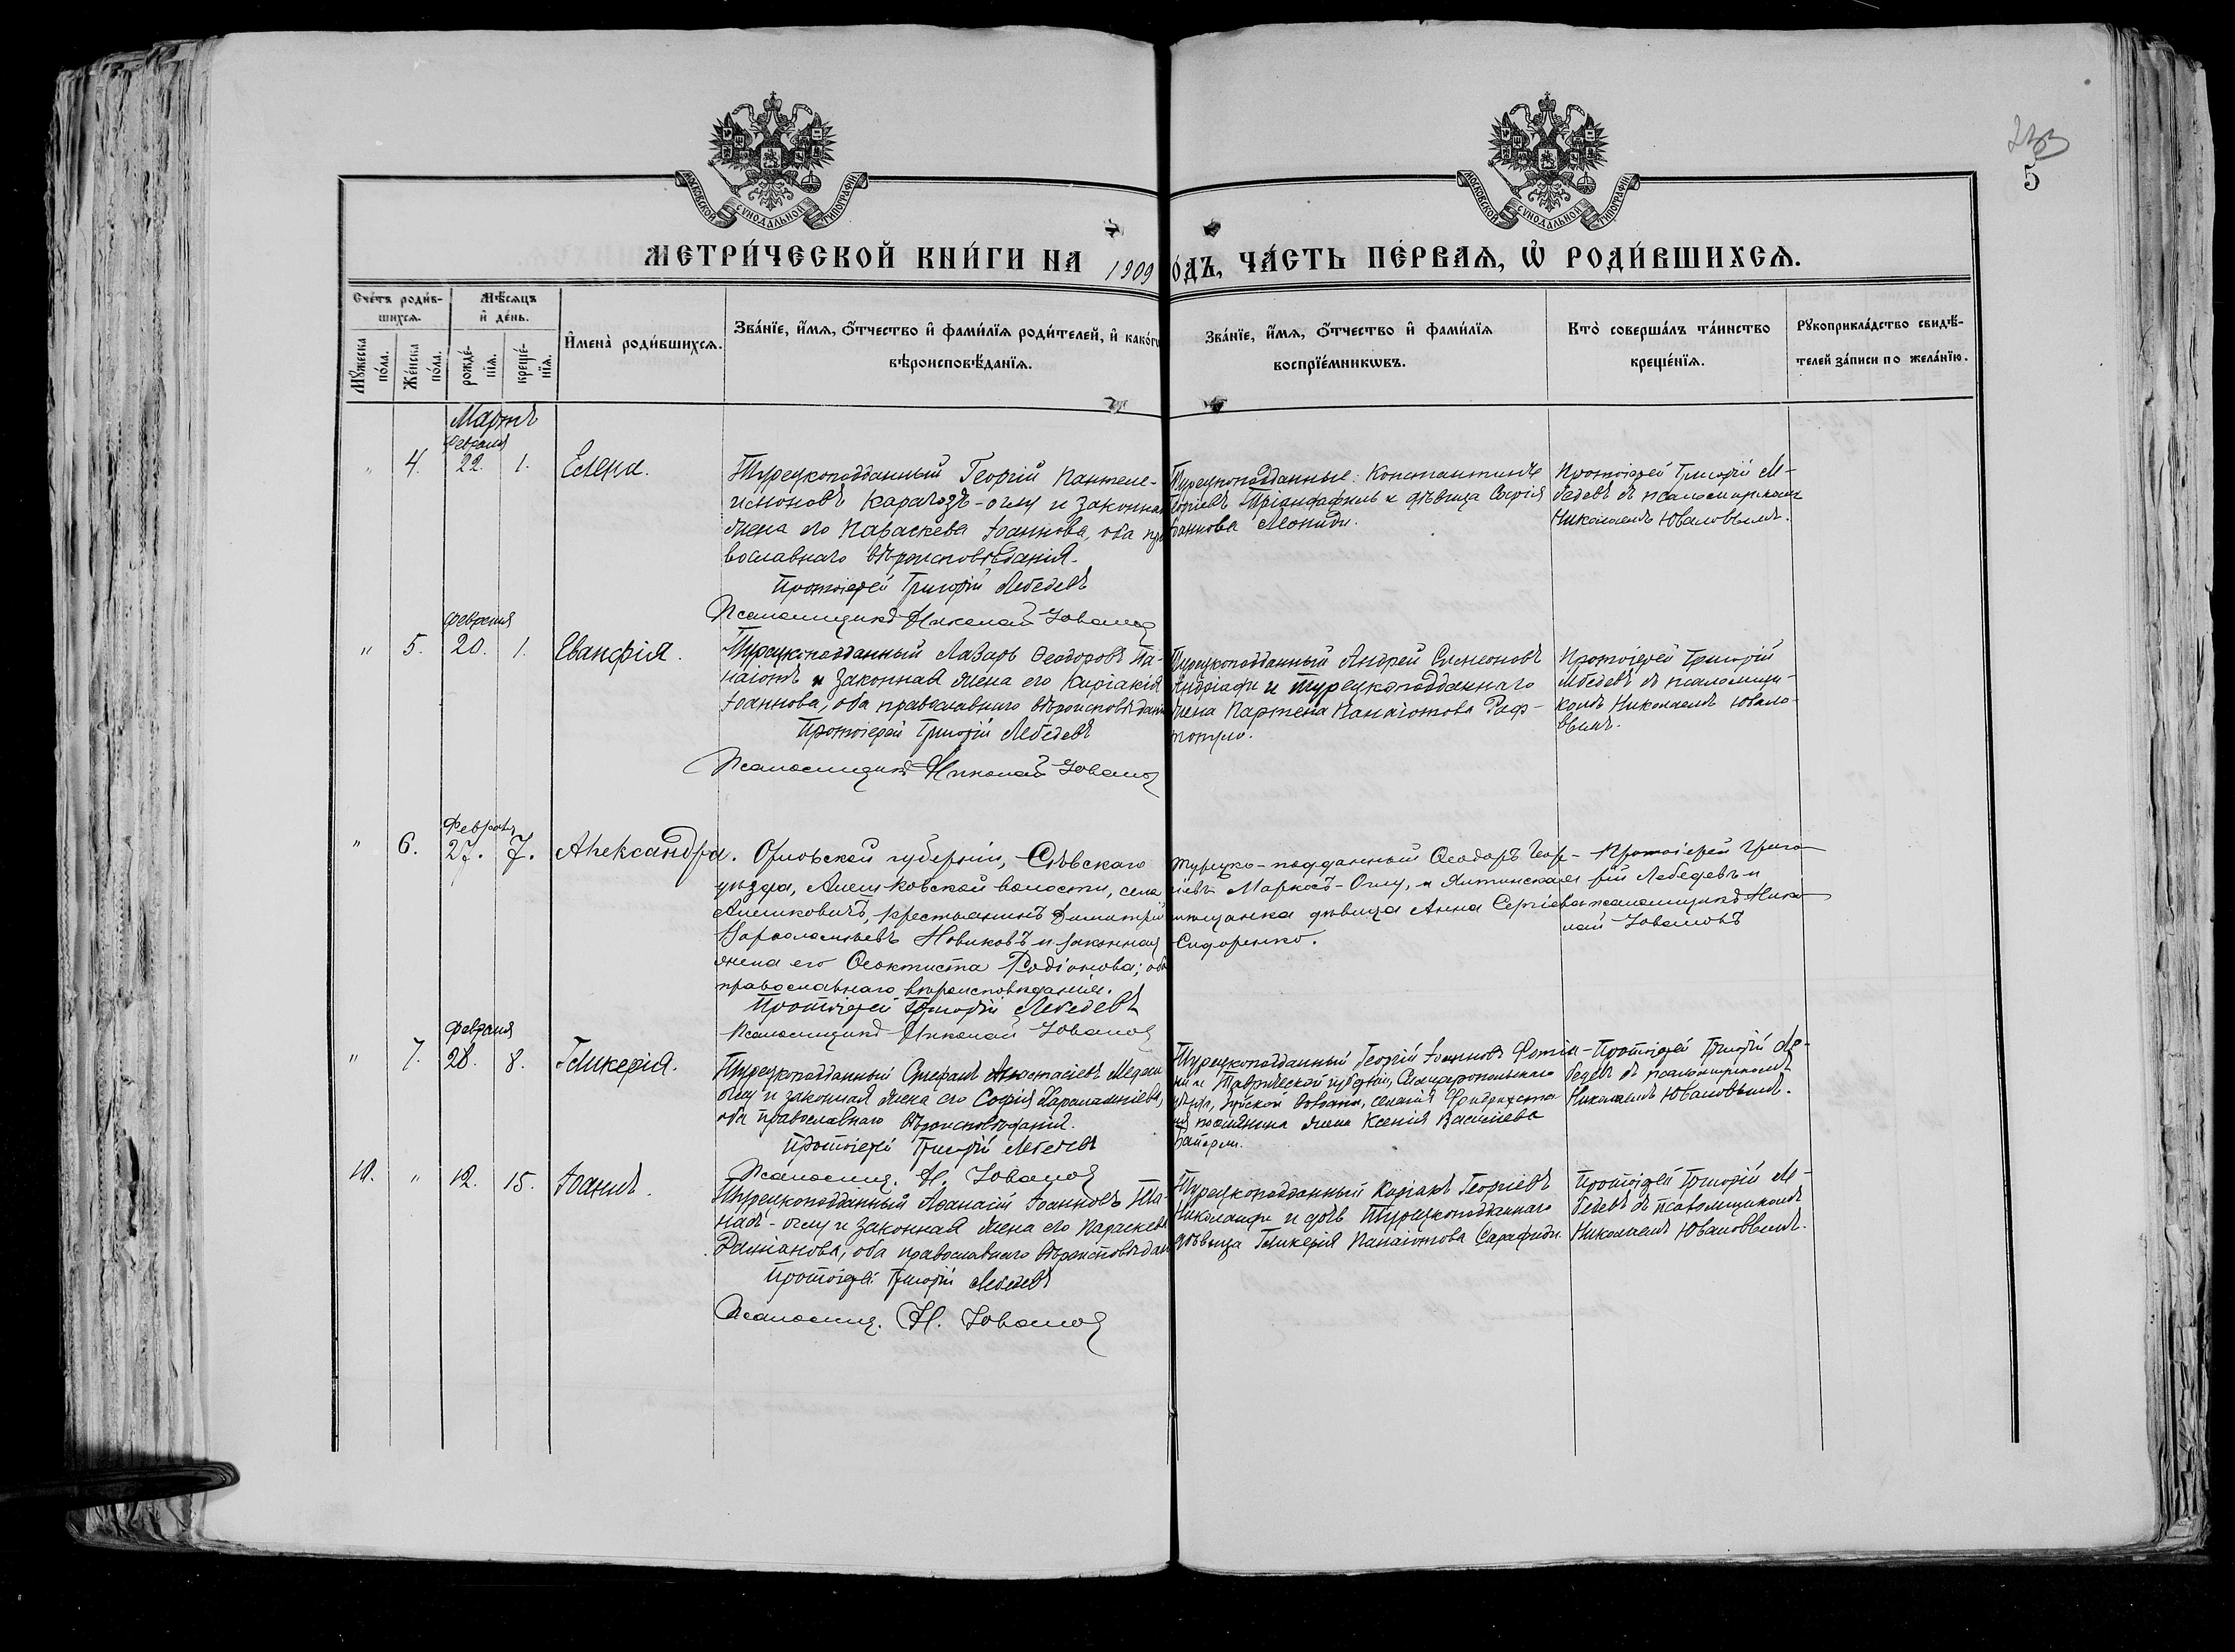 233
5
МОСКОВСКОЙ СѴНОДАЛЬНОЙ ТИПОГРАФІИ
МОСКОВСКОЙ СѴНОДАЛЬНОЙ ТИПОГРАФІИ
МЕТРИ́ЧЕСКОЙ КНИ́ГИ НА 1909 О́ДЪ, ЧА́СТЬ ПЕ́РВАѦ, Ѡ҆ РОДИ́ВШИХСѦ.
Сче́тъ роди́в-
шихсѧ.
Мꙋ́жеска по́ла.
Же́нска по́ла.
Мѣ́сѧцъ
и҆ де́нь.
рожде́-
нїѧ.
креще́-
нїѧ.
И҆мена̀ роди́вшихсѧ.
Зва́нїе, и҆́мѧ, ѻ҆́тчество и҆ фами́лїѧ роди́телей, и҆ како́гѡ
вѣроисповѣ́данїѧ.
Зва́нїе, и҆́мѧ, ѻ҆́тчество и҆ фами́лїѧ
воспрїе́мникѡвъ.
Кто̀ соверша́лъ та́инство
креще́нїѧ.
Рꙋкоприкла́дство свидѣ́-
телей за́писи по жела́нїю.
Мартъ
февраля
" 4. 22. 1. Елена.
Турецкоподданный Георгій Пантеле-
имоновъ Карагозъ-оглу и законная
жена его Параскева Іоаннова, оба пра
вославнаго вѣроисповѣданія.
Протоіерей Григорій Лебедевъ
Псаломщикъ Николай Юванов
Турецкоподданные: Константинъ
Георгіевъ Тріандафилъ и дѣвица Софія
Іоаннова Леониди.
Протоіерей Григорій Ле-
бедевъ съ псаломщикомъ
Николаемъ Ювановымъ.
февраля
" 5. 20. 1. Еванфія.
Турецкоподданный Лазарь Ѳеодоровъ Па-
наіотъ и законная жена его Киріакія
Іоаннова, оба православнаго вѣроисповѣдані
Протоіерей Григорій Лебедевъ
Псаломщикъ Николай Юванов
Турецкоподданный Андрей Симеоновъ
и Турецкоподданнаго
жена Партена Панаіотова
Протоіерей Григорій
Лебедевъ съ псаломщи-
комъ Николаемъ Ювано-
вымъ.
Февраля
" 6. 27. 7. Александра.
Орловской губерніи, Сѣвскаго
уѣзда, Алешковской волости, села
Алешковичъ, крестьянинъ Димитрій
Варѳоломеевъ Новиковъ и законная
жена его Ѳеоктиста Родіонова; оба
православнаго вѣроисповѣданія.
Протоіерей Григорій Лебедевъ
Псаломщикъ Николай Юванов
Турецко-подданный Ѳеодоръ Геор-
гіевъ Маркозъ-Оглу, и Ялтинская
мѣщанка дѣвица Анна Сергіева
Сидоренко.
Протоіерей Григо-
рій Лебедевъ и
псаломщикъ Нико
лайЮвановъ
февраля
" 7. 28. 8. Гликерія.
Турецкоподданный Стефанъ Анастасіевъ
оглу и законная жена его Софія Харалампіева,
оба православнаго вѣроисповѣданія.
Протоіерей Григорій Лебедевъ
Псаломщ. Н. Юванов
Турецкоподданный Георгій Іоанновъ Фотіа-
ди и Таврической губерніи, Симферопольскаго
уѣзда, волости, селенія
поселянина жена Ксенія Васильева
Протоіерей Григорій Ле-
бедевъ съ псаломщикомъ
Николаемъ Ювановымъ.
10. " 12. 15. Іоаннъ.
Турецкоподданный Аѳанасій Іоанновъ Па-
-оглу и законная жена его Параскева
Даміанова, оба православнаго вѣроисповѣдан
Протоіерей Григорій Лебедевъ
Псаломщ. Н. Юванов
Турецкоподданный Киріакъ Георгіевъ
Николаиди и дочь Турецкоподданнаго
дѣвица Гликерія Панаіотова Сарафиди.
Протоіерей Григорій Ле-
бедевъ съ псаломщикомъ
Николаемъ Ювановымъ.